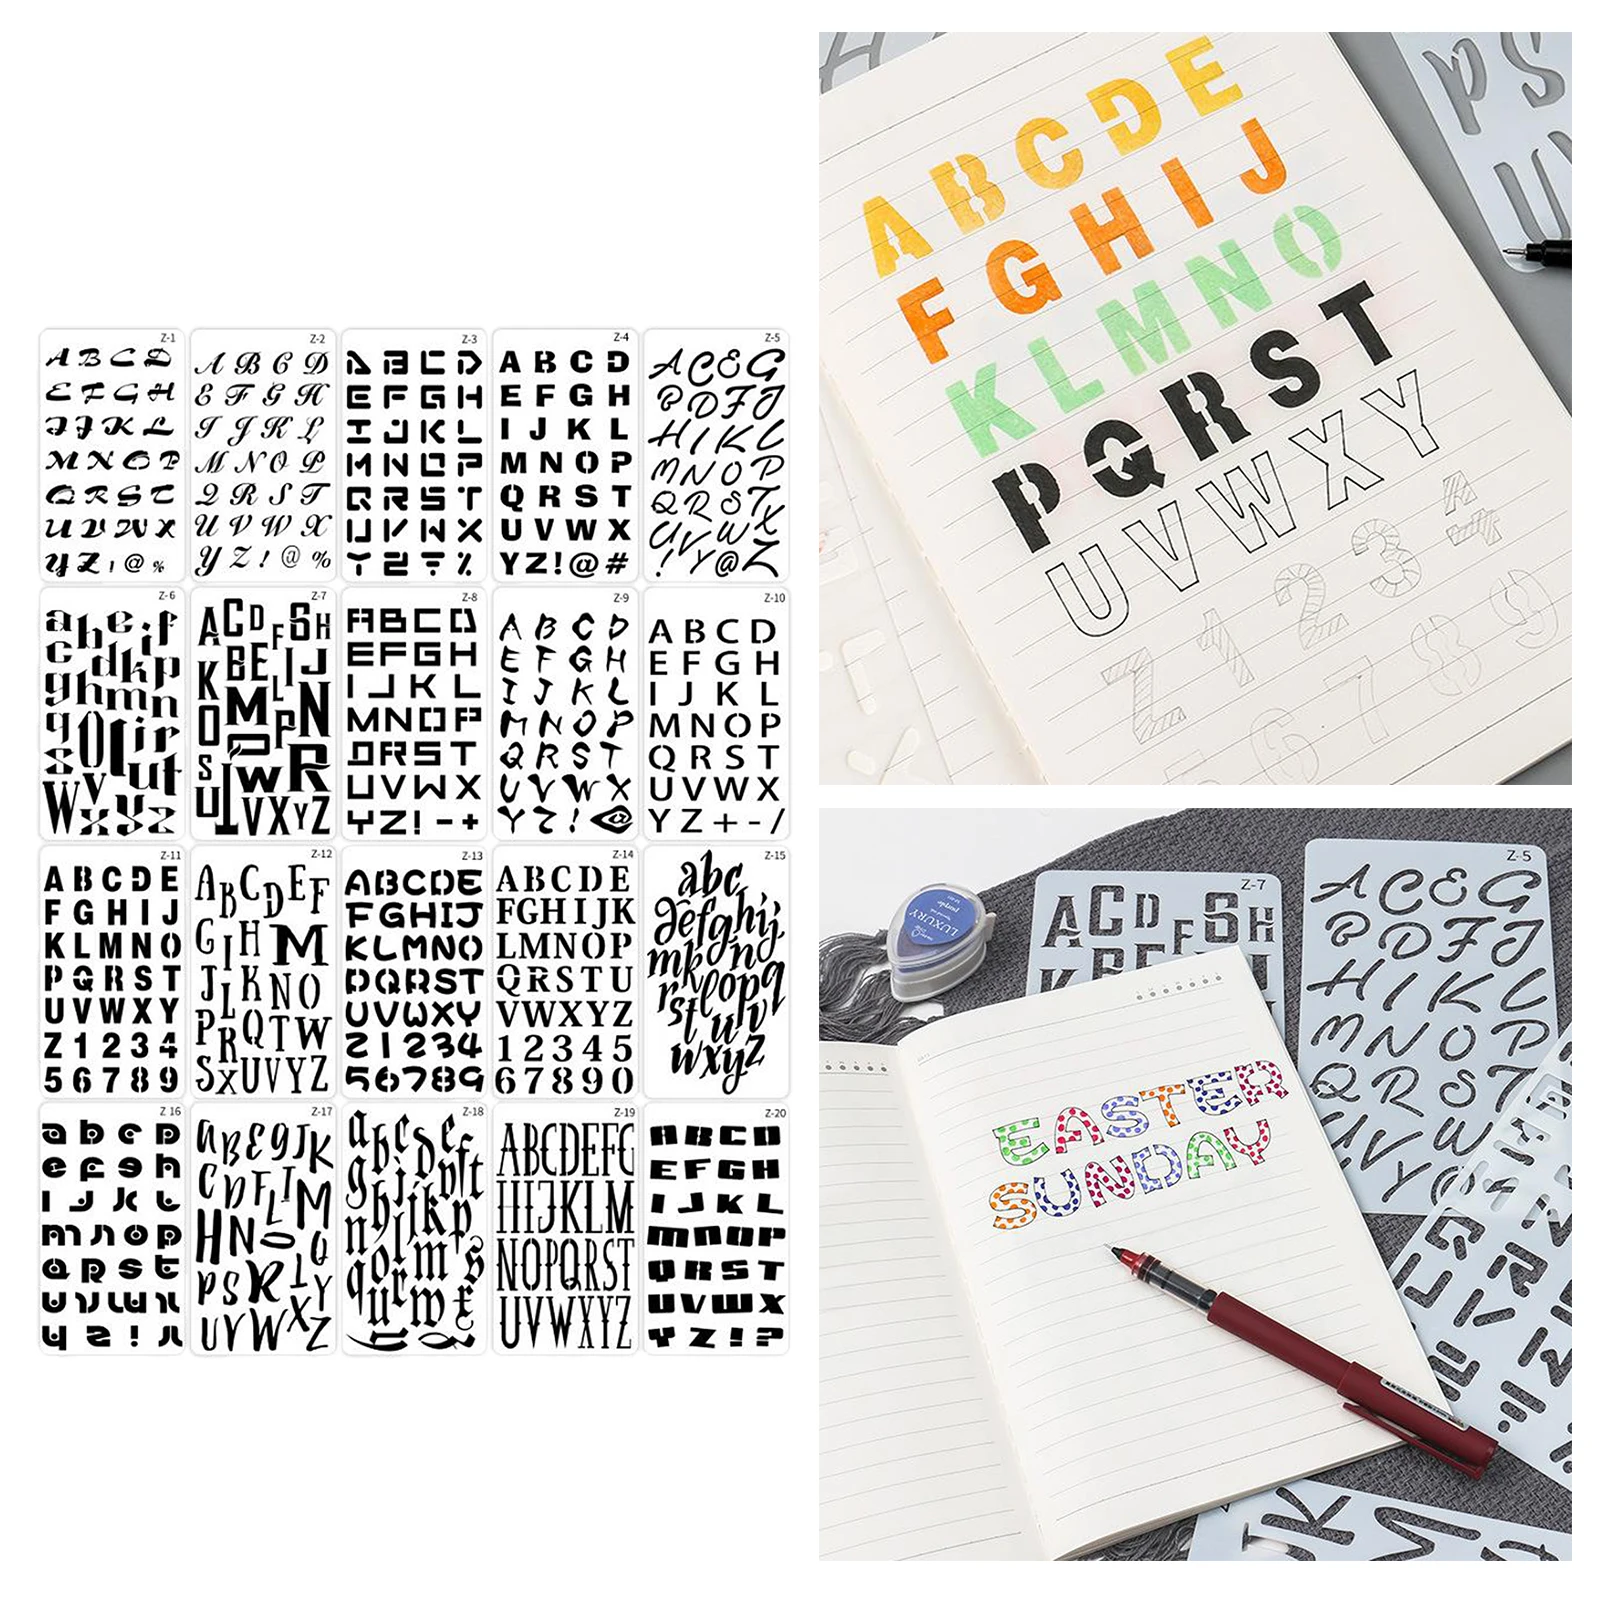 Z-1
A B C D
E F G H
I J K L
M N O P
Q R S T
U V W X
Y Z ! @ %
Z-2
A B C D
E F G H
I J K L
M N O P
Q R S T
U V W X
Y Z ! @ %
Z-3
A B C D
E F G H
I J K L
M N O P
Q R S T
U V W X
Y Z ? %
Z-4
A B C D
E F G H
I J K L
M N O P
Q R S T
U V W X
Y Z ! @ #
Z-5
A C E G
B D F J
H I K L
M N O P
Q R S T
U V W X
! Y @ Z
Z-6
a h e i f
c d k p
g h m n
q o l i r
s u t
w v
x y z
Z-7
A C D F S H
K B E I J
O M L P N
S U T W R
V X Y Z
Z-8
A B C D
E F G H
I J K L
M N O P
Q R S T
U V W X
Y Z ! - +
Z-9
A B C D
E F G H
I J K L
M N O P
Q R S T
U V W X
Y Z ! @
Z-10
A B C D
E F G H
I J K L
M N O P
Q R S T
U V W X
Y Z + - /
Z-11
A B C D E
F G H I J
K L M N O
P Q R S T
U V W X Y
Z 1 2 3 4
5 6 7 8 9
Z-12
A B C D E F
G I H M
J L K N O
P R Q T W
S X U V Y Z
Z-13
A B C D E
F G H I J
K L M N O
P Q R S T
U V W X Y
Z 1 2 3 4
5 6 7 8 9
Z-14
A B C D E
F G H I J K
L M N O P
Q R S T U
V W X Y Z
1 2 3 4 5
6 7 8 9 0
Z-15
a b c
d e f g h i j
m k l n g
r s t e o p q
t u v
w x y z
Z 16
a b c D
e f g h
i j k l
m n o p
q r s t
u v w x
y z ! 
Z-17
A B E G J K
C D F L I M
H N O Q
P S R T Y
U V W X Z
Z-18
a b c d e f
Z-19
A B C D E F G
H I J K L M
N O P Q R S T
U V W X Y Z
Z-20
A B C D
E F G H
I J K L
M N O P
Q R S T
U V W X
Y Z ! ?
A B C D E
F G H I J
K L M N O
P Q R S T
U V W X Y
Z 1 2 3 4
5 6 7 8 9
P S
Z-7
A C D F S H
Z-5
A C E G
B D F J
H I K L
M N O P
Q R S T
U V W
V Y @
LUXURY
purple
EASTER
SUNDAY
J K